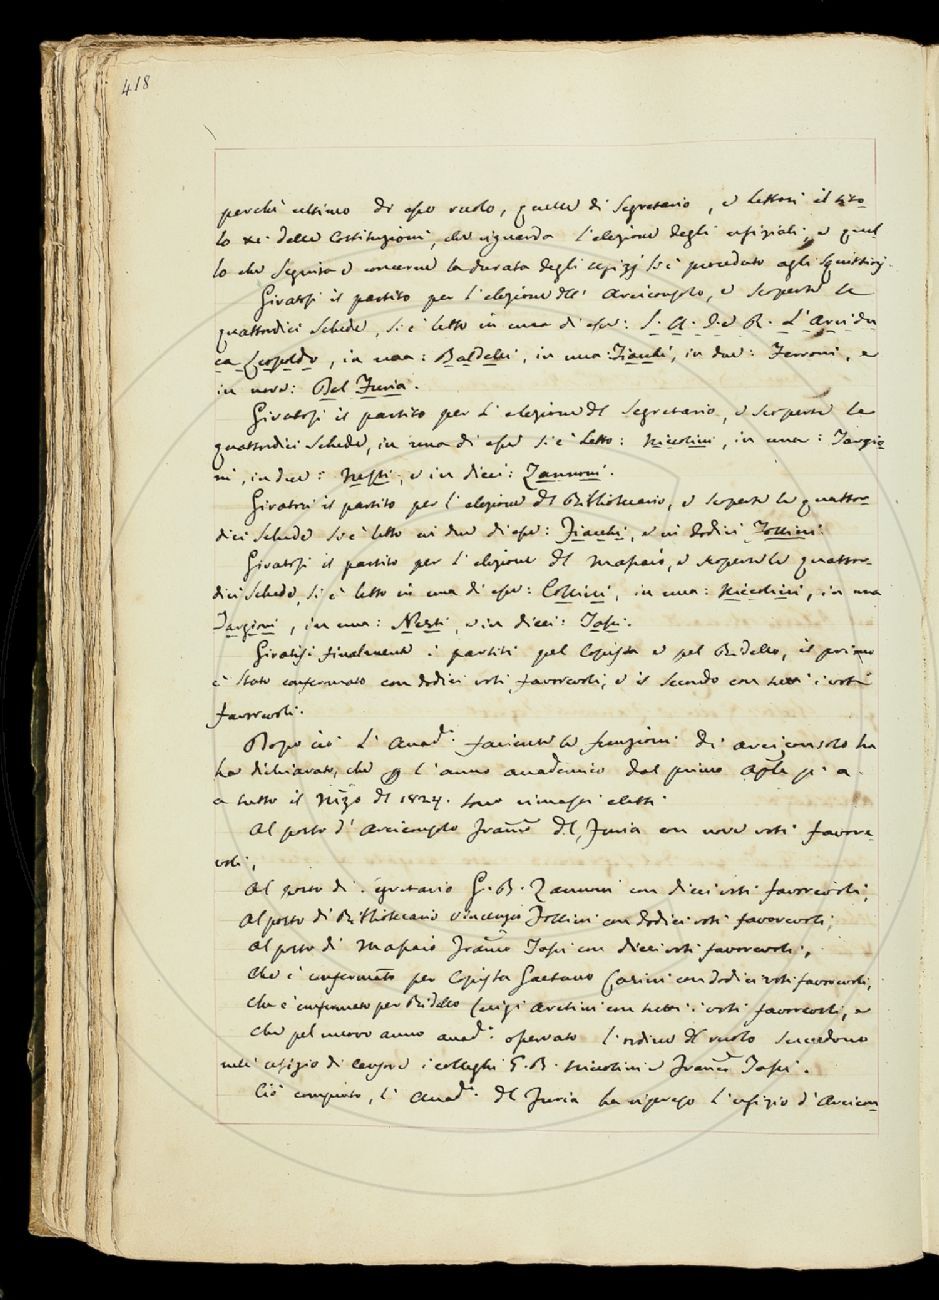 418
perchè ultimo di esso ruolo, quelle di Segretario, e lettosi il tito-
lo XI. delle Costituzioni, che riguarda l'elezione degli ufiziali, e quel
lo che seguita e concerne la durata degli ufizj si è proceduto agli Squittinj.
Giratosi il partito per l'elezione dell' Arciconsolo, e scoperte le
quattordici schede, si è letto in una di esse: S. A. I. e R. L'Arcidu
ca Leopoldo, in una: Baldelli, in una: Fiacchi, in due: Ferroni, e
in nove: Del Furia.
Giratosi il partito per l'elezione del Segretario, e scoperte le
quattordici schede, in una di esse si è letto: Niccolini, in una: Targio
ni, in due: Nesti, e in dieci: Zannoni.
Giratosi il partito per l'elezione del Bibliotecario, e scoperte le quattor-
dici schede si è letto in due di esse: Fiacchi, e in dodici Follini.
Giratosi il partito per l'elezione del Massaio, e scoperte le quattor-
dici schede, si è letto in una di esse: Collini, in una: Niccolini, in una
Targioni, in una: Nesti, e in dieci: Tassi.
Giratisi finalmente i partiti pel Copista e pel Bidello, il primo
è stato confermato con dodici voti favorevoli, e il secondo con tutti i voti
favorevoli.
Dopo ciò l'Accad.º facente le funzioni di Arciconsolo ha
ha dichiarato, che per l'anno accademico dal primo
a tutto il del 1824. sono rimasti eletti
Al posto d'Arciconsolo Franc.º del Furia con nove voti favore-
voli,
Al posto di Segretario G. B. Zannoni con dieci voti favorevoli,
Al posto di Bibliotecario Vincenzio Follini con dodici voti favorevoli,
Al posto di Massaio Franc.º Tassi con dieci voti favorevoli,
Che è confermato per Copista Gaetano con dodici voti favorevoli,
Che è confermato per Bidello Luigi con tutti i voti favorevoli, e
Che pel nuovo anno accad.º osservato l'ordine del ruolo succedono
nell'ufizio di Censore i colleghi G. B. Niccolini e Franc.º Tassi.
Ciò compiuto, l'Accad.º del Furia ha ripreso l'ufizio d'Arcicon